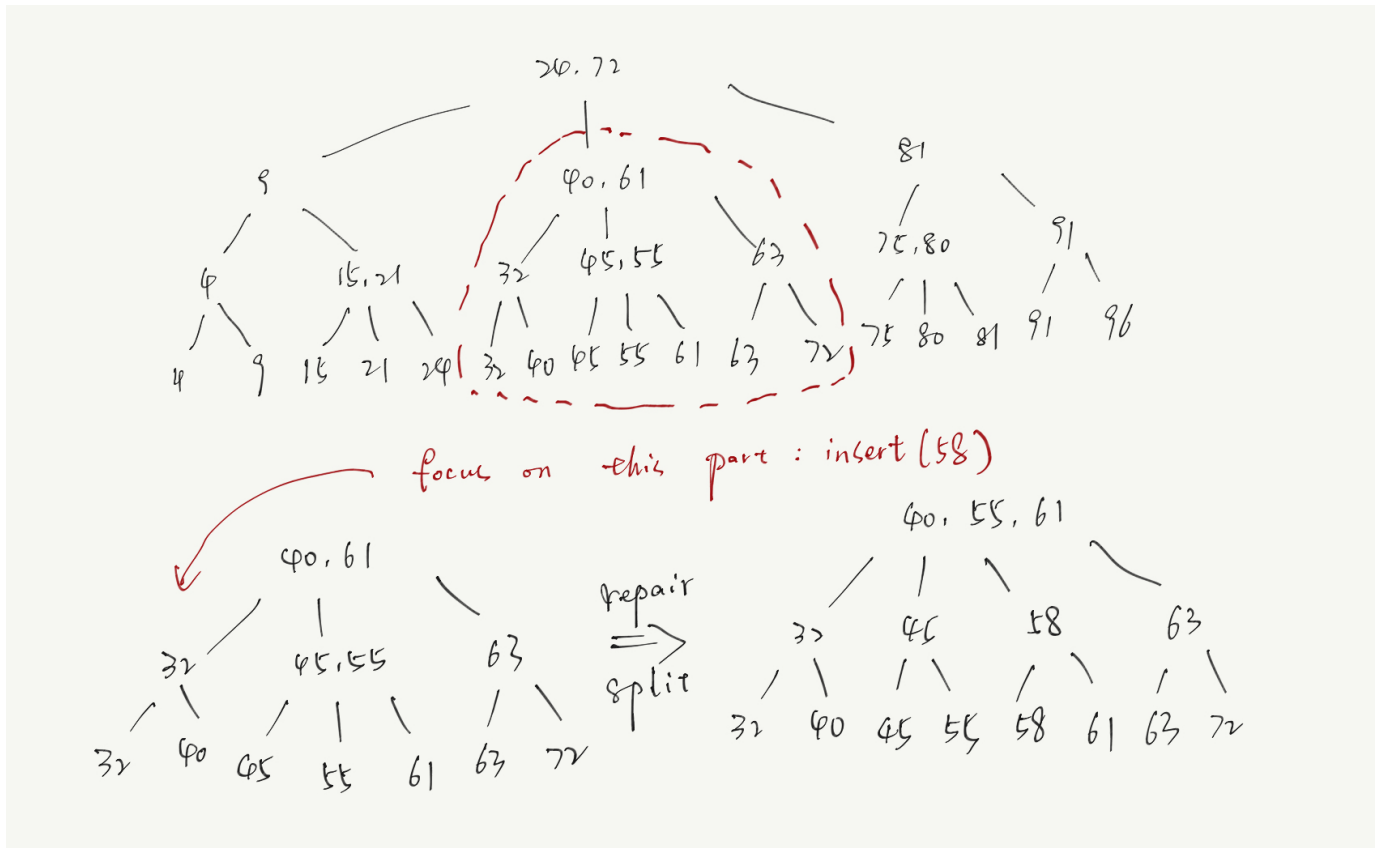 24, 72
9
40, 61
81
4
15, 21
32
45, 55
63
75, 80
91
4 9 15 21 24 32 40 45 55 61 63 72 75 80 81 91 96
focus on this part : insert (58)
40, 61
32
45, 55
63
32 40 45 55 61 63 72
repair
split
40, 55, 61
32
45
58
63
32 40 45 55 58 61 63 72